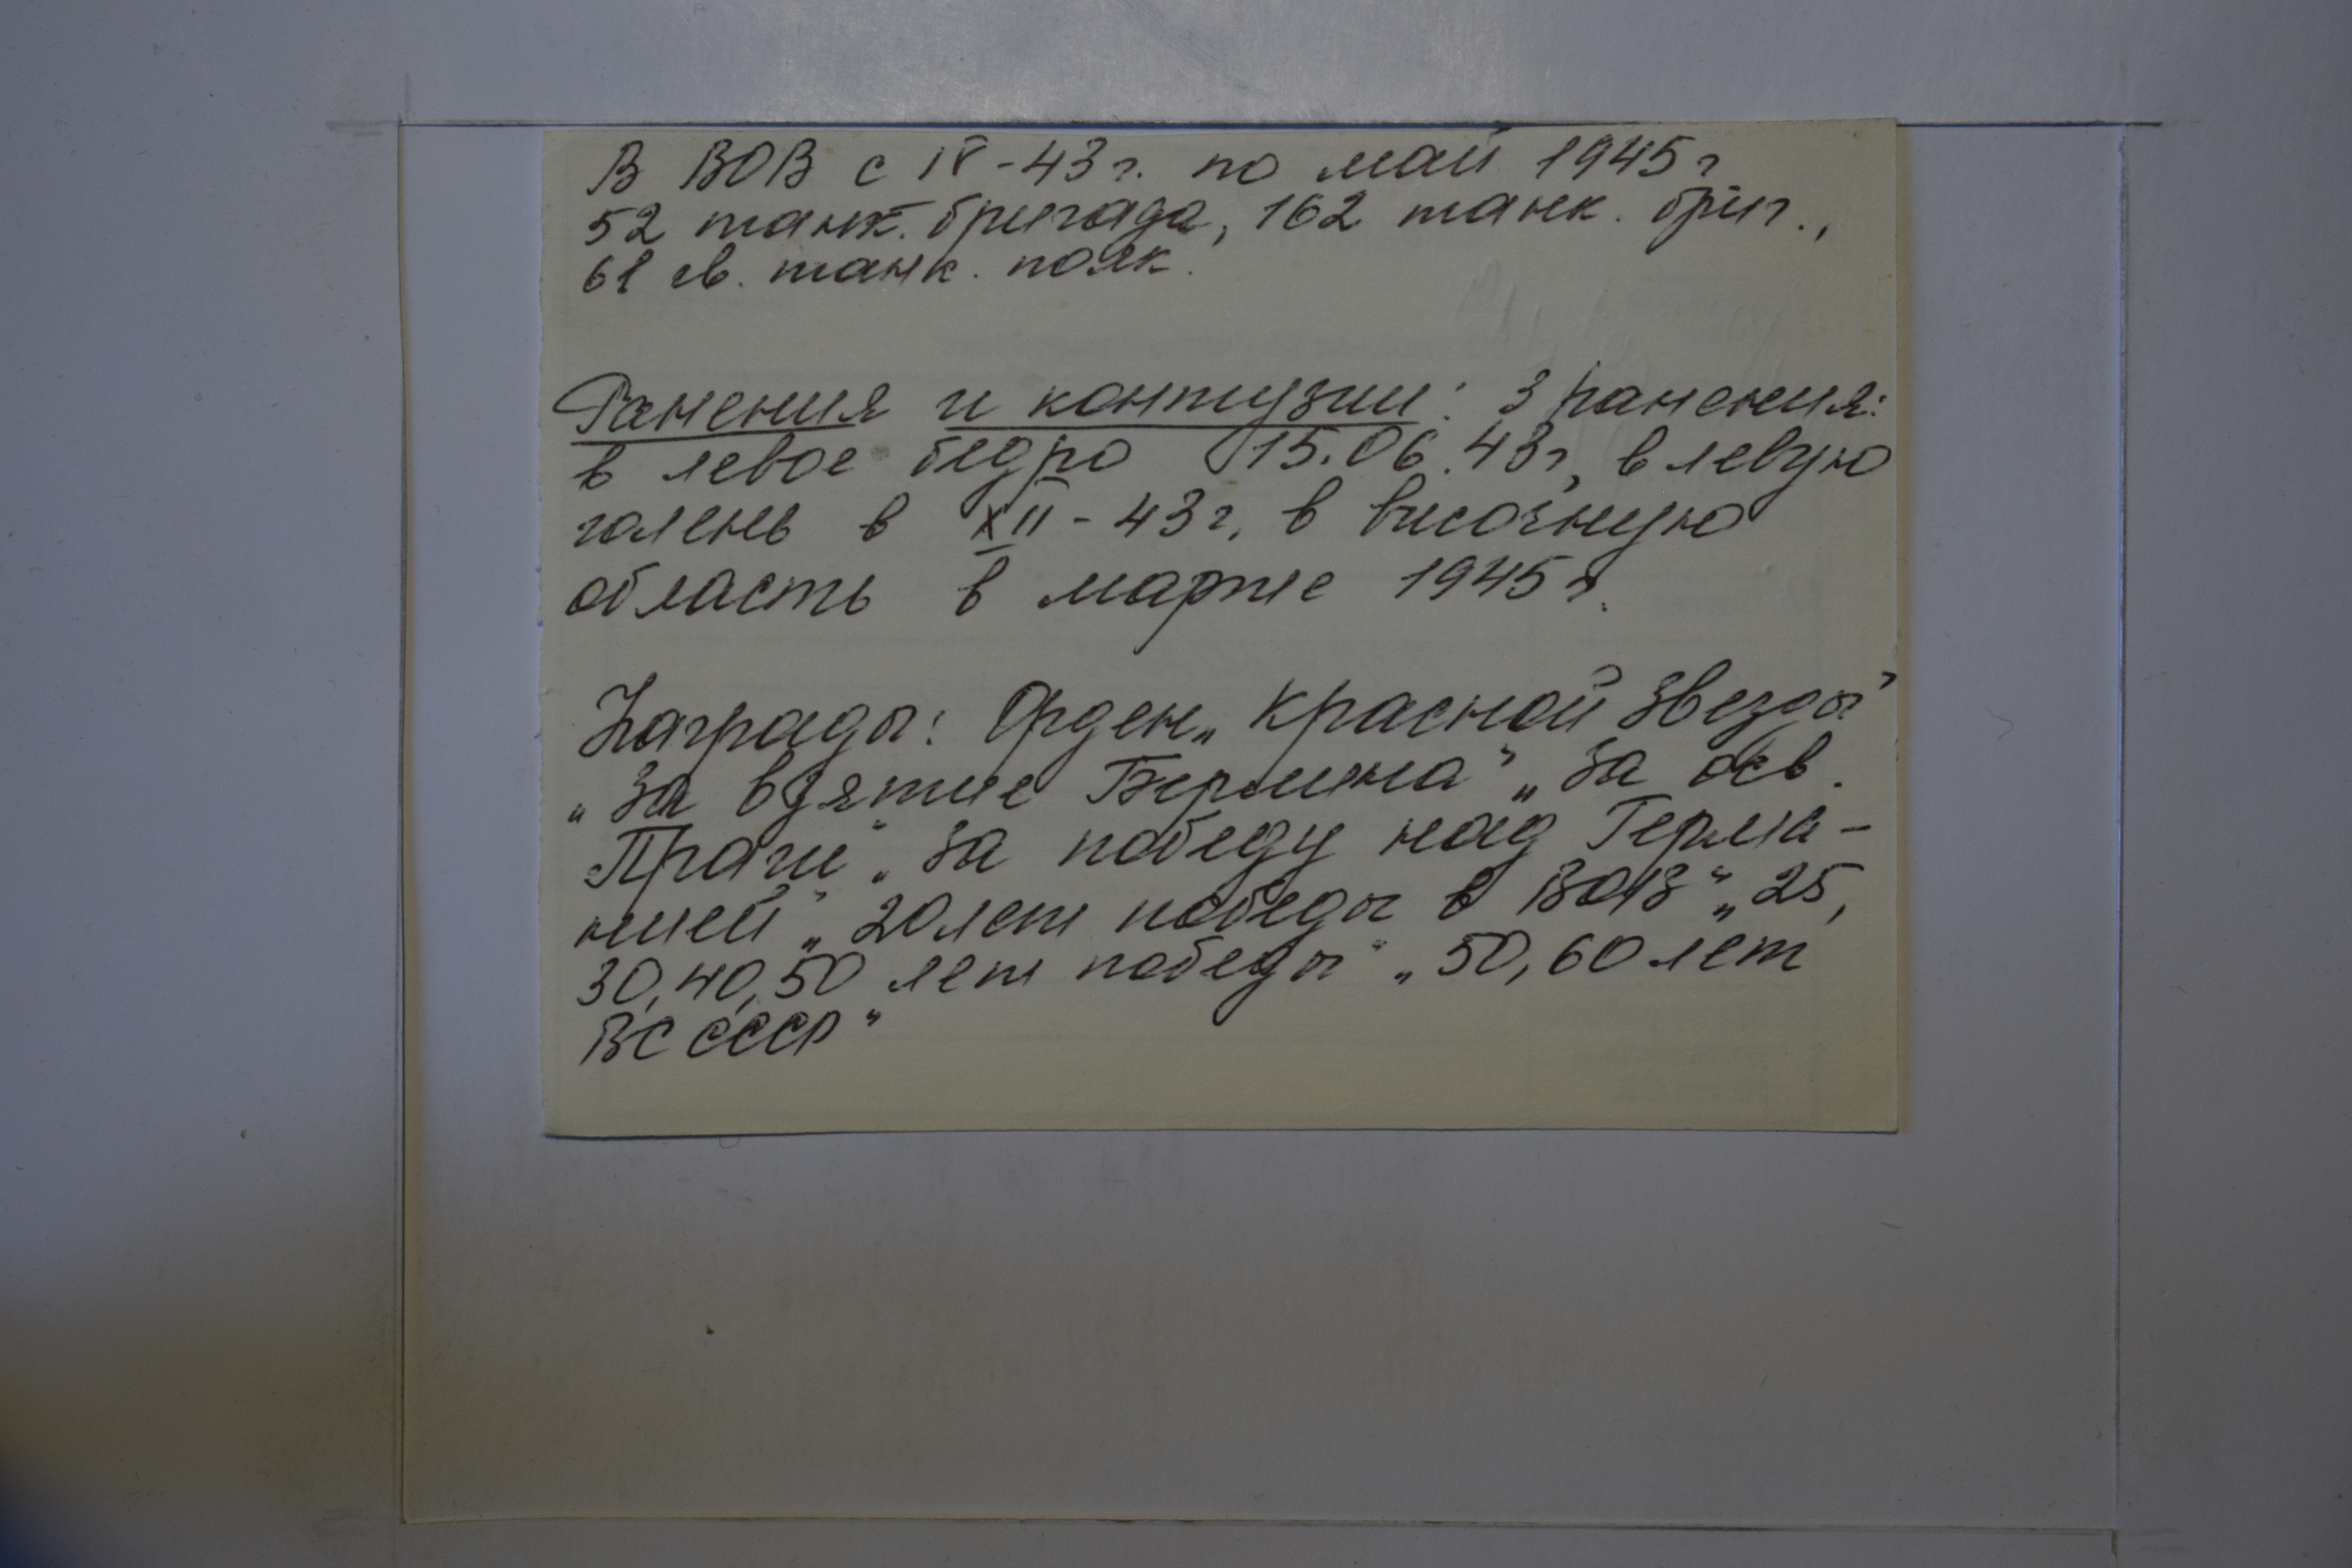 В ВОВ с IV-43 г. по май 1945 г
52 танк. бригада, 162 танк. бриг.,
61 гв. танк. полк.
Ранения и контузии: 3 ранения:
в левое бедро 15.06.43 г, в левую
голень в XII-43 г, в височную
область в марте 1945 г.
Награды: Орден „Красной Звезды"
„За взятие Берлина" „За осв.
Праги" „За победу над Герма-
нией" „20 лет победы в ВОВ" „25,
30, 40, 50 лет победы" „50, 60 лет
ВС СССР"